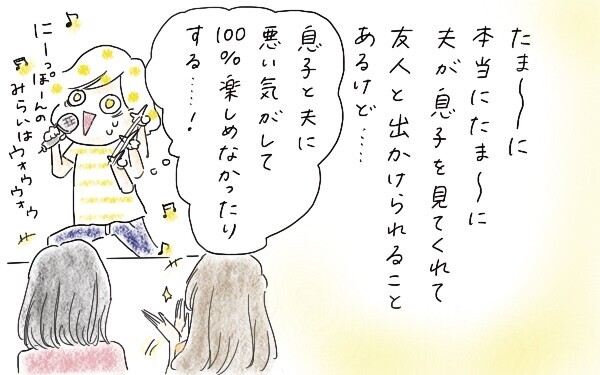 たま〜〜に
本当にたま〜に
夫が息子を見てくれて
友人と出かけられること
あるけど……
息子と夫に
悪い気がして
100%楽しめなかったり
する……!
にーっぽーんの
みらいは
ウォウウォウ